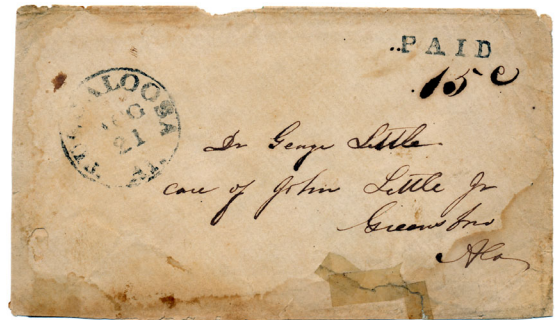 PAID
15c
ALOOSA
21
Dr George Little
care of John Little Jr
Greensboro
Ala